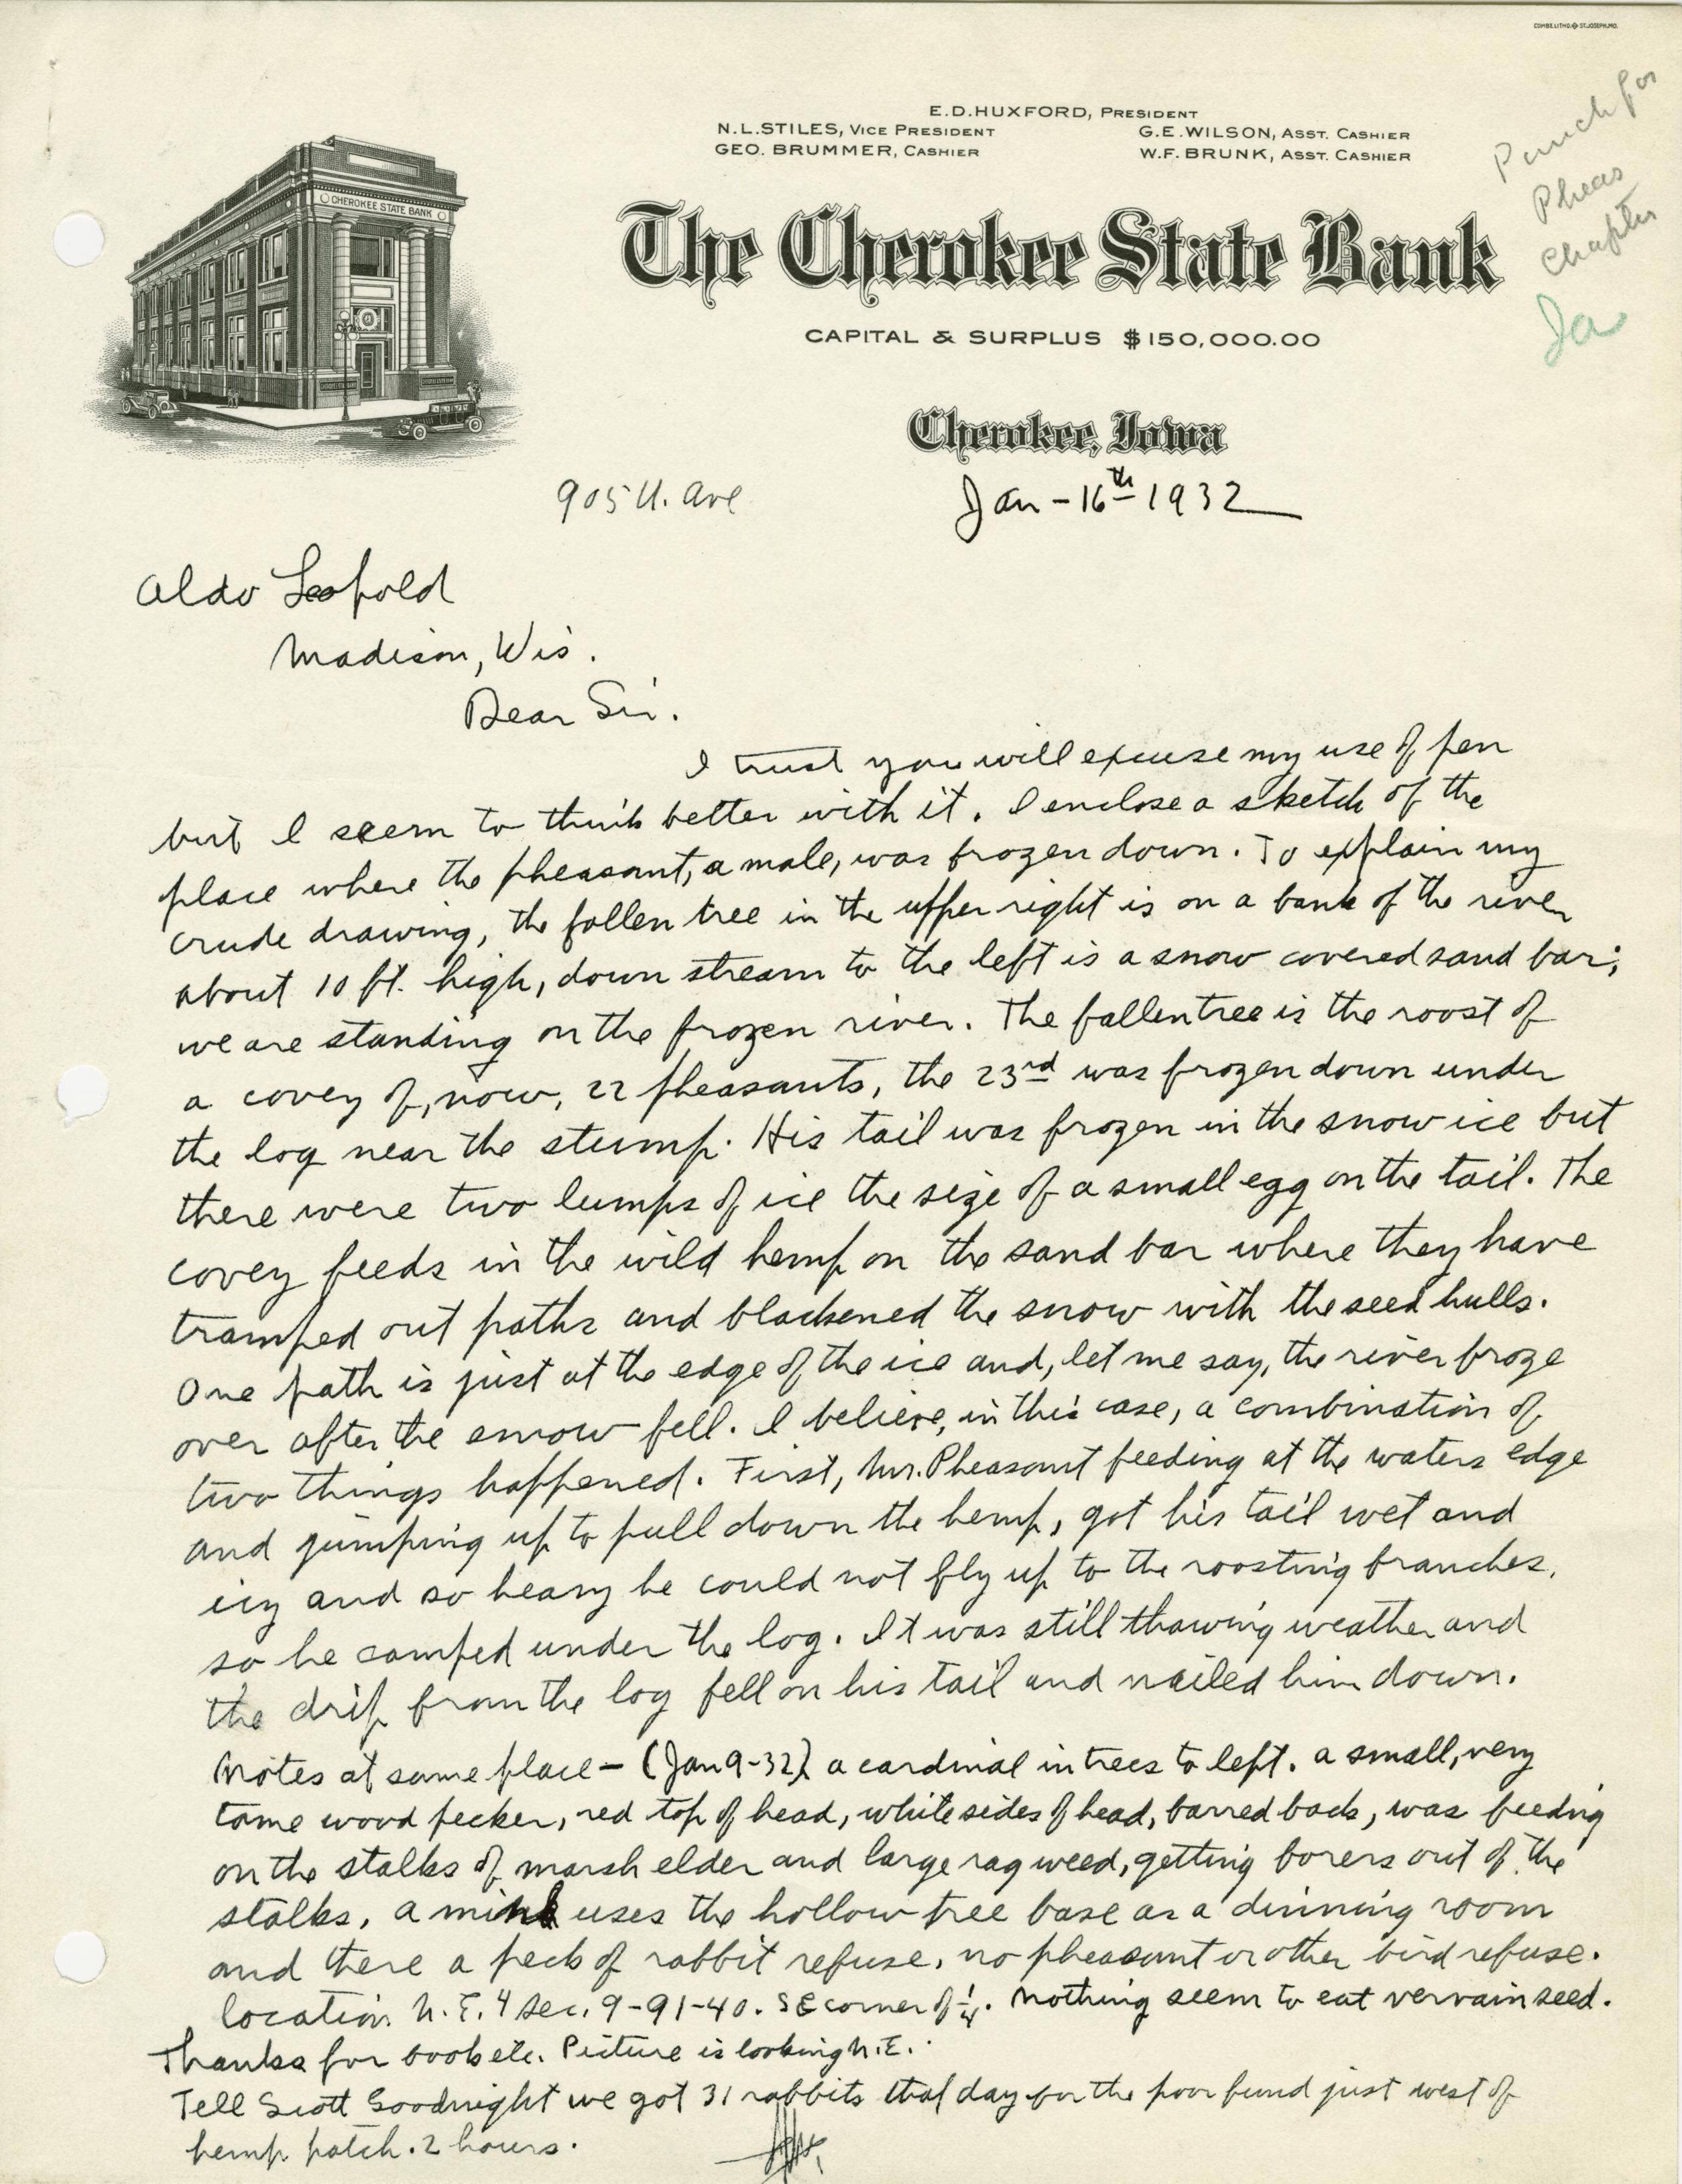 COMBE LITHO. ST. JOSEPH, MO.
E.D. HUXFORD, PRESIDENT
N.L. STILES, VICE PRESIDENT
G.E. WILSON, ASST. CASHIER
GEO. BRUMMER, CASHIER
W.F. BRUNK, ASST. CASHIER
Punch for
Pheas
Chapter
Ja
CHEROKEE STATE BANK
The Cherokee State Bank
CAPITAL & SURPLUS $150,000.00
Cherokee, Iowa
905 U. Ave
Jan - 16th 1932
Aldo Leopold
Madison, Wis.
Dear Sir.
I trust you will excuse my use of pen
but I seem to think better with it. I enclose a sketch of the
place where the pheasant, a male, was frozen down. To explain my
crude drawing, the fallen tree in the upper right is on a bank of the river
about 10 ft. high, down stream to the left is a snow covered sand bar;
we are standing on the frozen river. The fallen tree is the roost of
a covey of, now, 22 pheasants, the 23rd was frozen down under
the log near the stump. His tail was frozen in the snow ice but
there were two lumps of ice the size of a small egg on the tail. The
covey feeds in the wild hemp on the sand bar where they have
tramped out paths and blackened the snow with the seed hulls.
One path is just at the edge of the ice and, let me say, the river froze
over after the snow fell. I believe, in this case, a combination of
two things happened. First, Mr. Pheasant feeding at the waters edge
and jumping up to pull down the hemp, got his tail wet and
icy and so heavy he could not fly up to the roosting branches,
so he camped under the log. It was still thawing weather and
the drip from the log fell on his tail and nailed him down.
Notes at same place - (Jan 9-32) a cardinal in trees to left. a small, very
tame wood pecker, red top of head, white sides of head, barred back, was feeding
on the stalks of marsh elder and large rag weed, getting borers out of the
stalks, a mink uses the hollow tree base as a dinning room
and there a peck of rabbit refuse, no pheasant or other bird refuse.
location N.E. 4 Sec. 9-91-40. SE corner of 1/4. Nothing seem to eat vervain seed.
Thanks for book etc. Picture is looking N.E.
Tell Scott Goodnight we got 31 rabbits that day for the poor fund just west of
hemp patch. 2 hours.